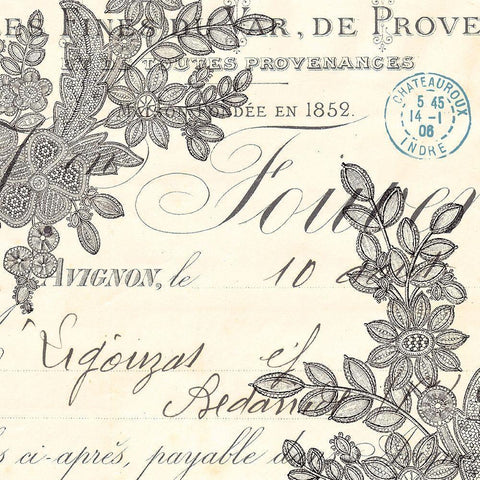 LES FINES DU VAR, DE PROVE
ET DE TOUTES PROVENANCES
MAISON FONDÉE EN 1852.
CHATEAUROUX
5 45
14 - 1
06
INDRE
AVIGNON, le 10 août
Ligouzat et
ci-après, payable